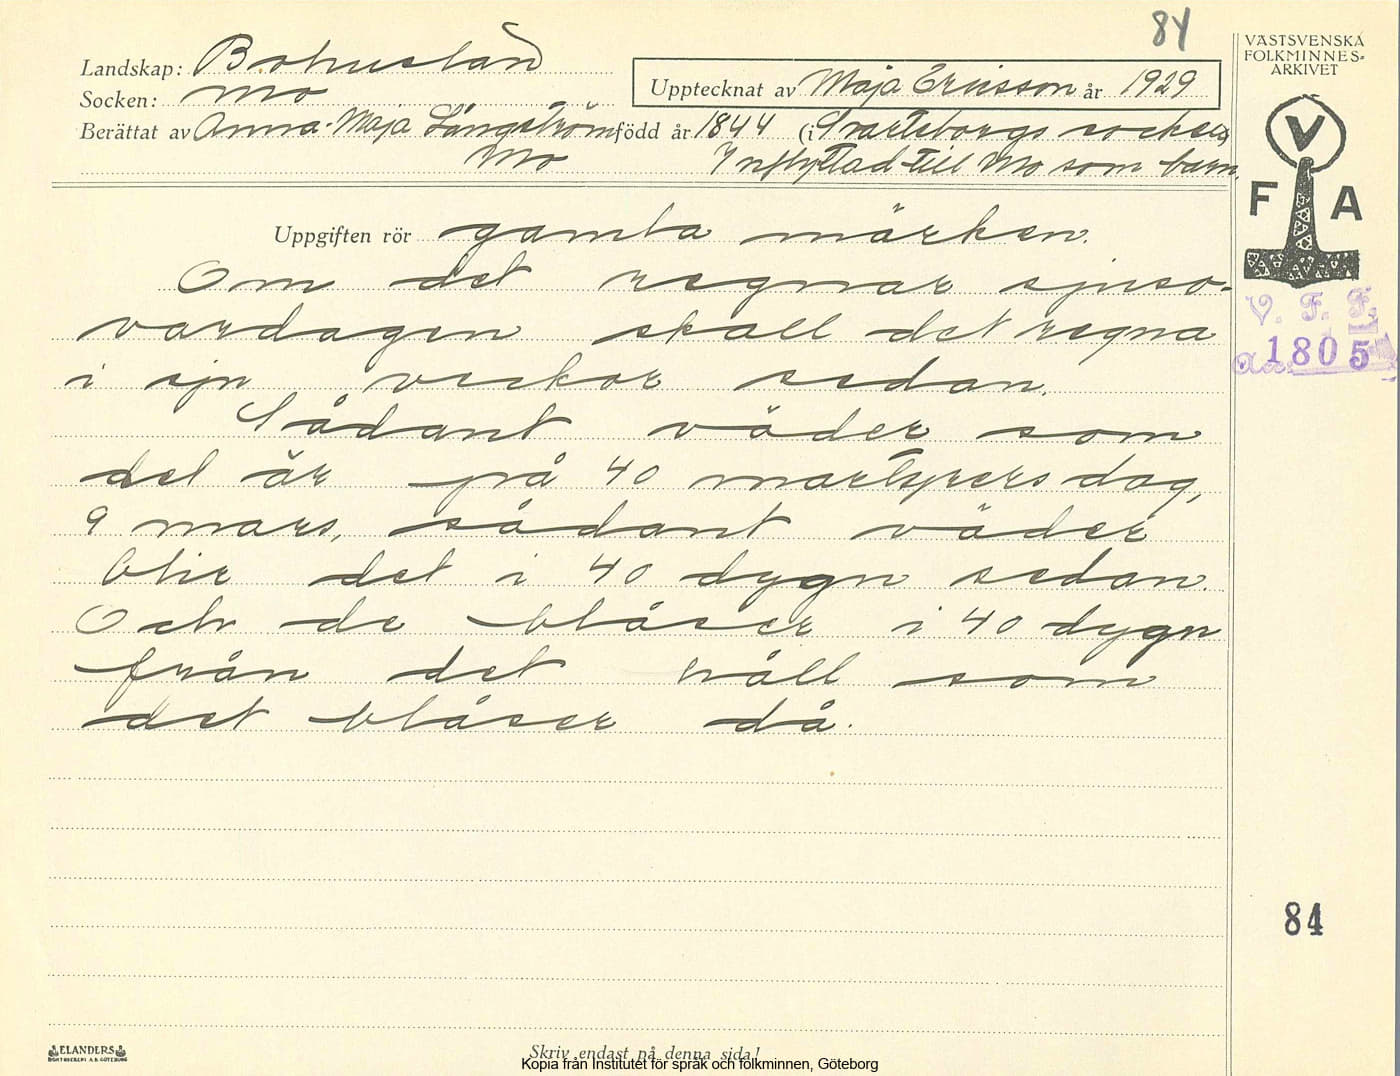 84
VÄSTSVENSKA
FOLKMINNES-
ARKIVET
Landskap: Bohuslän
Socken: Mo
Upptecknat av Maja Ericsson år 1929
Berättat av Anna-Maja Långström född år 1844 (i Svartsborgs socken)
Mo Inflyttad till Mo som barn.
V
F A
Uppgiften rör gamla märken.
Om det regnar sjuso-
vardagen skall det regna
i sju veckor sedan.
Sådant väder som
det är på 40 martyrers dag,
9 mars, sådant väder
blir det i 40 dygn sedan.
Och de blåser i 40 dygn
från det håll som
det blåser då.
V. F. F.
1805
84
ELANDERS
BOKTRYCKERI A.B. GÖTEBORG
Skriv endast på denna sida!
Kopia från Institutet för språk och folkminnen, Göteborg